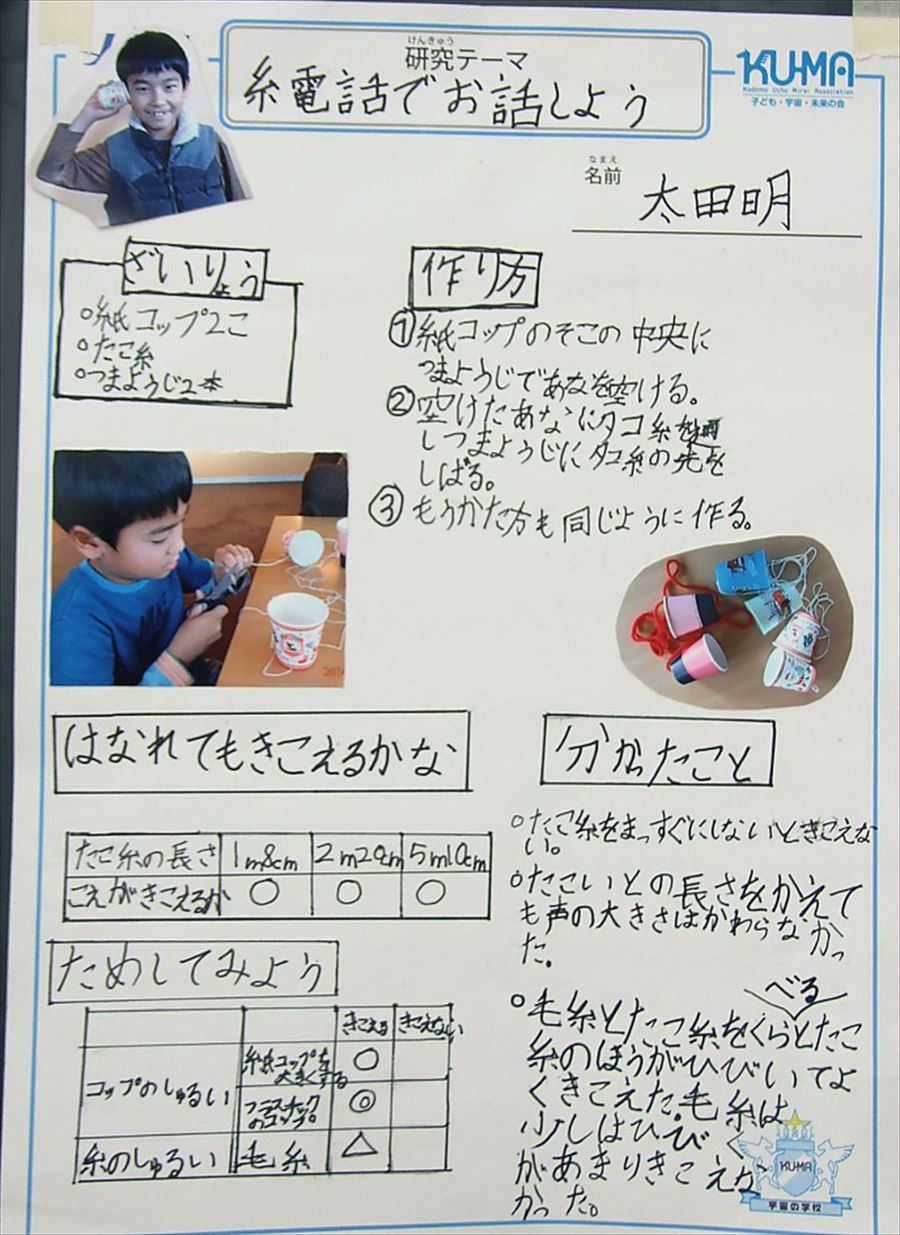 けんきゅう
研究テーマ
糸電話でお話しよう
KU-MA
Kodomo Uchu Mirai Association
子ども・宇宙・未来の会
なまえ
名前
太田明
ざいりょう
○紙コップ2こ
○たこ糸
○つまようじ2本
作り方
①紙コップのそこの中央に
つまようじであなを空ける。
②空けたあなにタコ糸を通
しつまようじにタコ糸の先を
しばる。
③もうかた方も同じように作る。
はなれてもきこえるかな
たこ糸の長さ 1m8cm 2m20cm 5m10cm
こえがきこえるか ○ ○ ○
ためしてみよう
きこえる きこえない
コップのしゅるい 紙コップを
大きくする ○
プラスチック
のコップ ◎
糸のしゅるい 毛糸 △
分かったこと
○たこ糸をまっすぐにしないときこえな
い。
○たこいとの長さをかえて
も声の大きさはかわらなかっ
た。
べる
○毛糸とたこ糸をくらとたこ
糸のほうがひびいてよ
くきこえた。毛糸は
少しはひびく
があまりきこえな
かった。
KU-MA
宇宙の学校